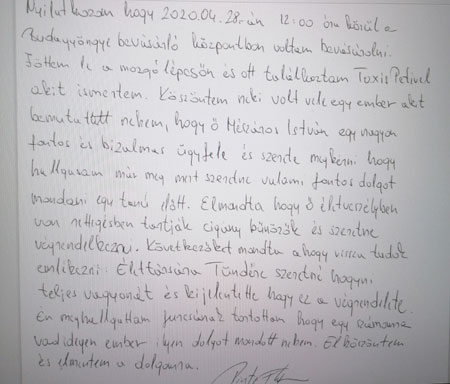 Nyilatkozom hogy 2020.04.28-án 12:00 óra körül a
Budagyöngye bevásárló központban voltam bevásárolni.
Jöttem le a mozgólépcsőn és ott találkoztam Tuxis Petivel
akit ismertem. Köszöntem neki volt vele egy ember akit
bemutatott nekem, hogy ő Mészáros István egy nagyon
fontos és bizalmas ügyfele és szerette megkérni hogy
hallgassam már meg mert szeretne valami fontos dolgot
mondani egy tanú előtt. Elmondta hogy ő életveszélyben
van rettegésben tartják cigány bűnözők és szeretne
végrendelkezni. Következőket mondta ahogy vissza tudok
emlékezni. Élettársára Tündére szeretné hagyni
teljes vagyonát és kijelentette hogy ez a végrendelete.
Én meghallgattam furcsának tartottam hogy egy számomra
vadidegen ember ilyen dolgot mondott nekem. Elköszöntem
és elmentem a dolgomra.